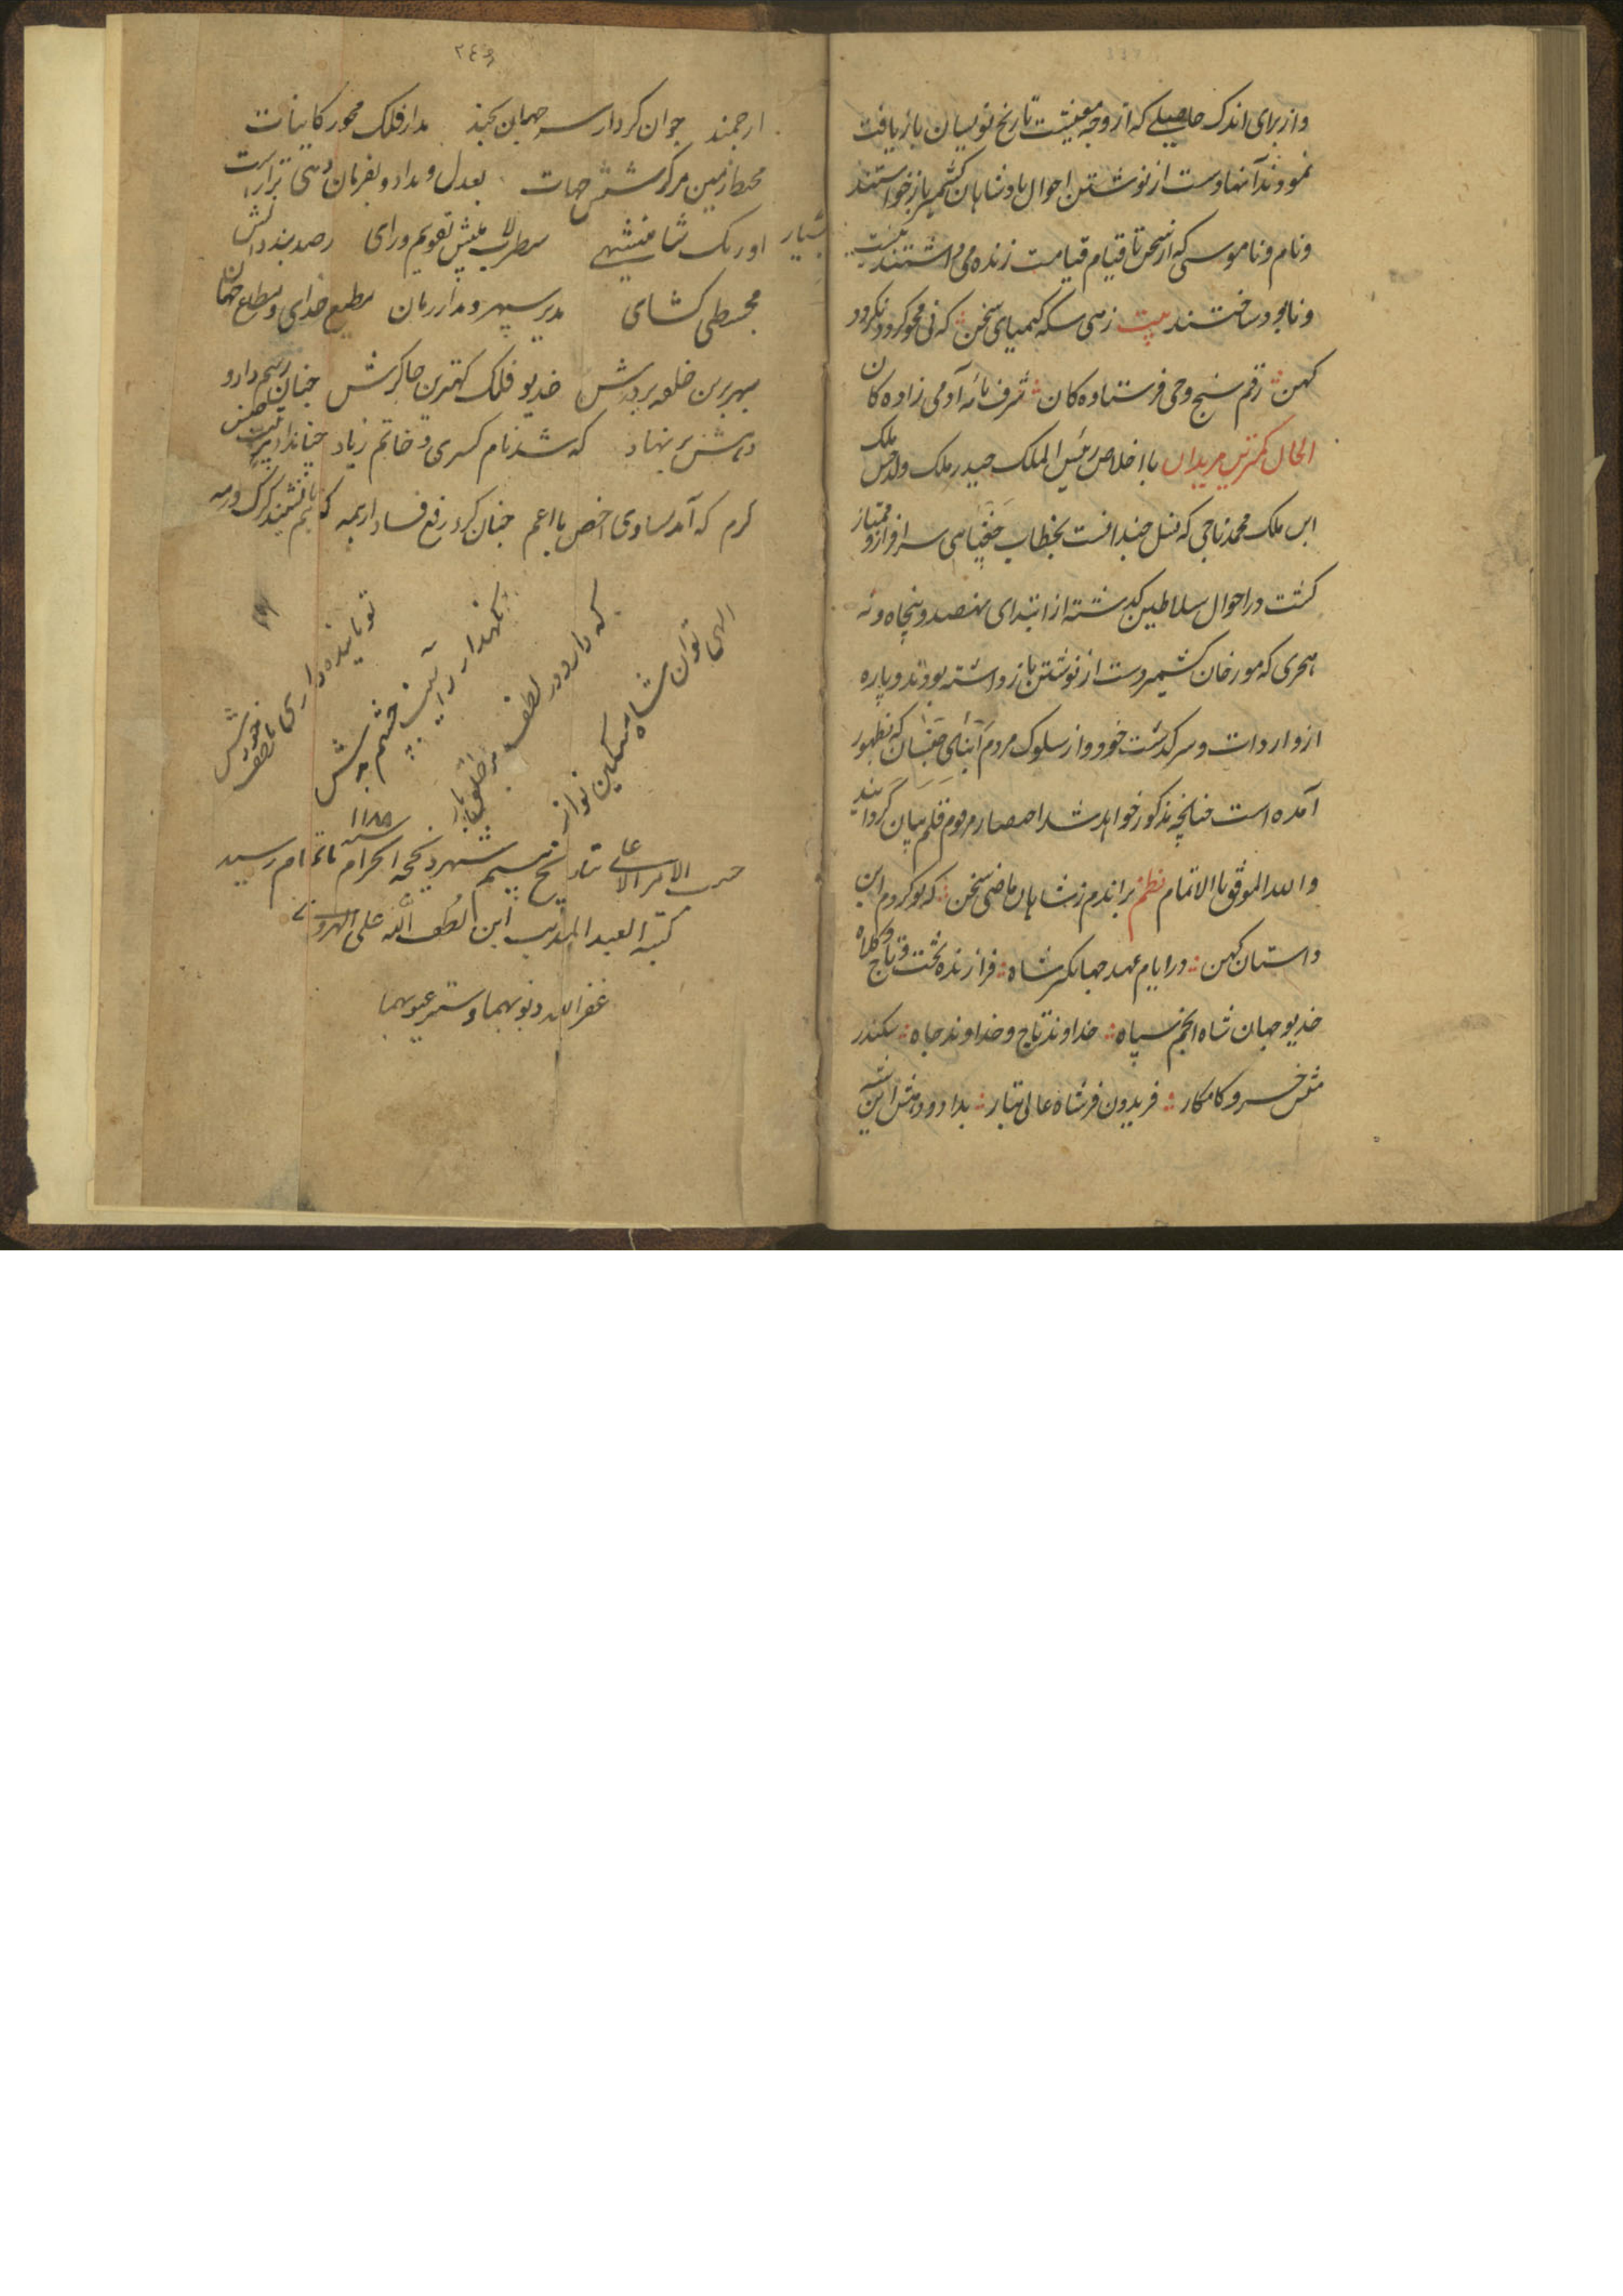 واز برای اندک حاصلی که از وجه معیشت تاریخ نویسان باز یافت
نمودند آنها دست از نوشتن احوال پادشاهان کشمیر باز خواستند
ونام وناموسی که از سخن تا قیام قیامت زنده می داشتند نیست
ونابود ساختند بیت زهی سکه کیمیای سخن که نی محو کردد نکردد
کهن رقم سنج وحی فرستاده کان شرف نامه آدمی زاده کان
الحال کمترین مریدان با اخلاص رئیس الملک حیدر ملک ولد حسن ملک
ابن ملک محمد ناجی که بخطاب چغتیائی سرافراز و ممتاز
کشت در احوال سلاطین کذشته از ابتدای نهصد و پنجاه و نه
هجری که مورخان کشمیر دست از نوشتن باز داشته بودند و پاره
از واردات و سرکذشت خود و از سلوک مردم ابنای که بظهور
آمده است چنانچه مذکور خواهد شد باختصار مرقوم قلم بیان گرداند
والله الموفق بالاتمام نظم براندم ز شاهان ماضی سخن که نو کردم این
داستان کهن در ایام عهد جهانکیر شاه فرازنده تخت و تاج و کلاه
خدیو جهان شاه انجم سپاه خداوند تاج و خداوند جاه سکندر
منش خسرو کامکار فریدون فر شاه عالی تبار بداد و دهش
٢٤٩
ارجمند جوان کردار سر جهان مدار فلک محور کاینات
محیط زمین مرکز شش جهات بعدل و بداد و بفرمان دهی
اورنک شاهنشهی سطرلاب بینش تقویم و رای رصد بند دانش
مجسطی کشای مدبر سپهر و مدار زمان مطیع خدای و مطاع جهان
سپهر برین حلقه بر درش خدیو فلک کهترین چاکرش چنان رسم داد و
دهش بر نهاد که شد نام کسری و خاتم زیاد
کرم که آمد مساوی اخص با اعم چنان کرد رفع فساد از همه که با هم نشینند کرک و رمه
الهی توآن شاه مسکین نواز
که دارد در لطف بر خلق باز
نکهدار از آسیب چشم بدش
تو پاینده داری بلطف خودش
حسب الامر الاعلی بتاریخ بیستم شهر ذیحجه الحرام سنه ١١٨٥ باتمام رسید
کتبه العبد المذنب ابن لطف الله علی الهروی
غفر الله ذنوبهما و ستر عیوبهما